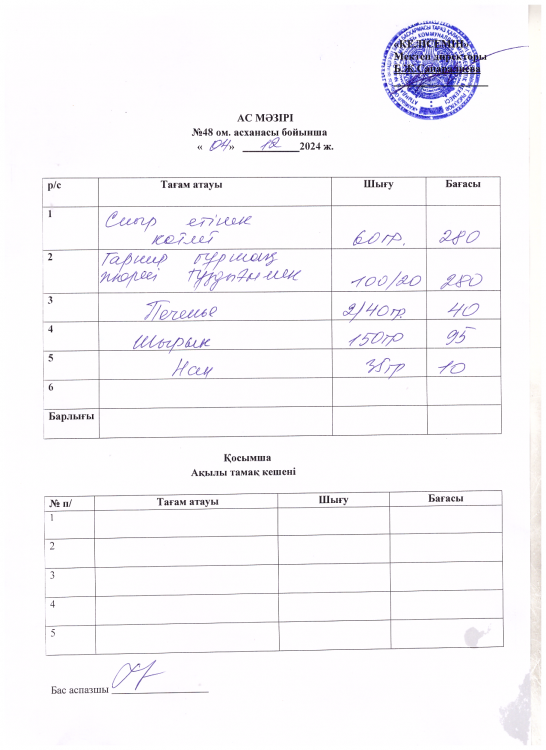 «КЕЛІСЕМІН»
Мектеп директоры
Б.Ж.Сапаралиева
АС МӘЗІРІ
№48 ом. асханасы бойынша
« 04 » 12 2024 ж.
р/с Тағам атауы Шығу Бағасы
1 Сиыр етінен
котлет 60гр. 280
2 Гарнир бұршақ
пюресі тұздықпен 100/20 280
3 Печенье 2/40гр 40
4 Шырын 150гр 95
5 Нан 35гр 10
6
Барлығы
Қосымша
Ақылы тамақ кешені
№ п/ Тағам атауы Шығу Бағасы
1
2
3
4
5
Бас аспазшы